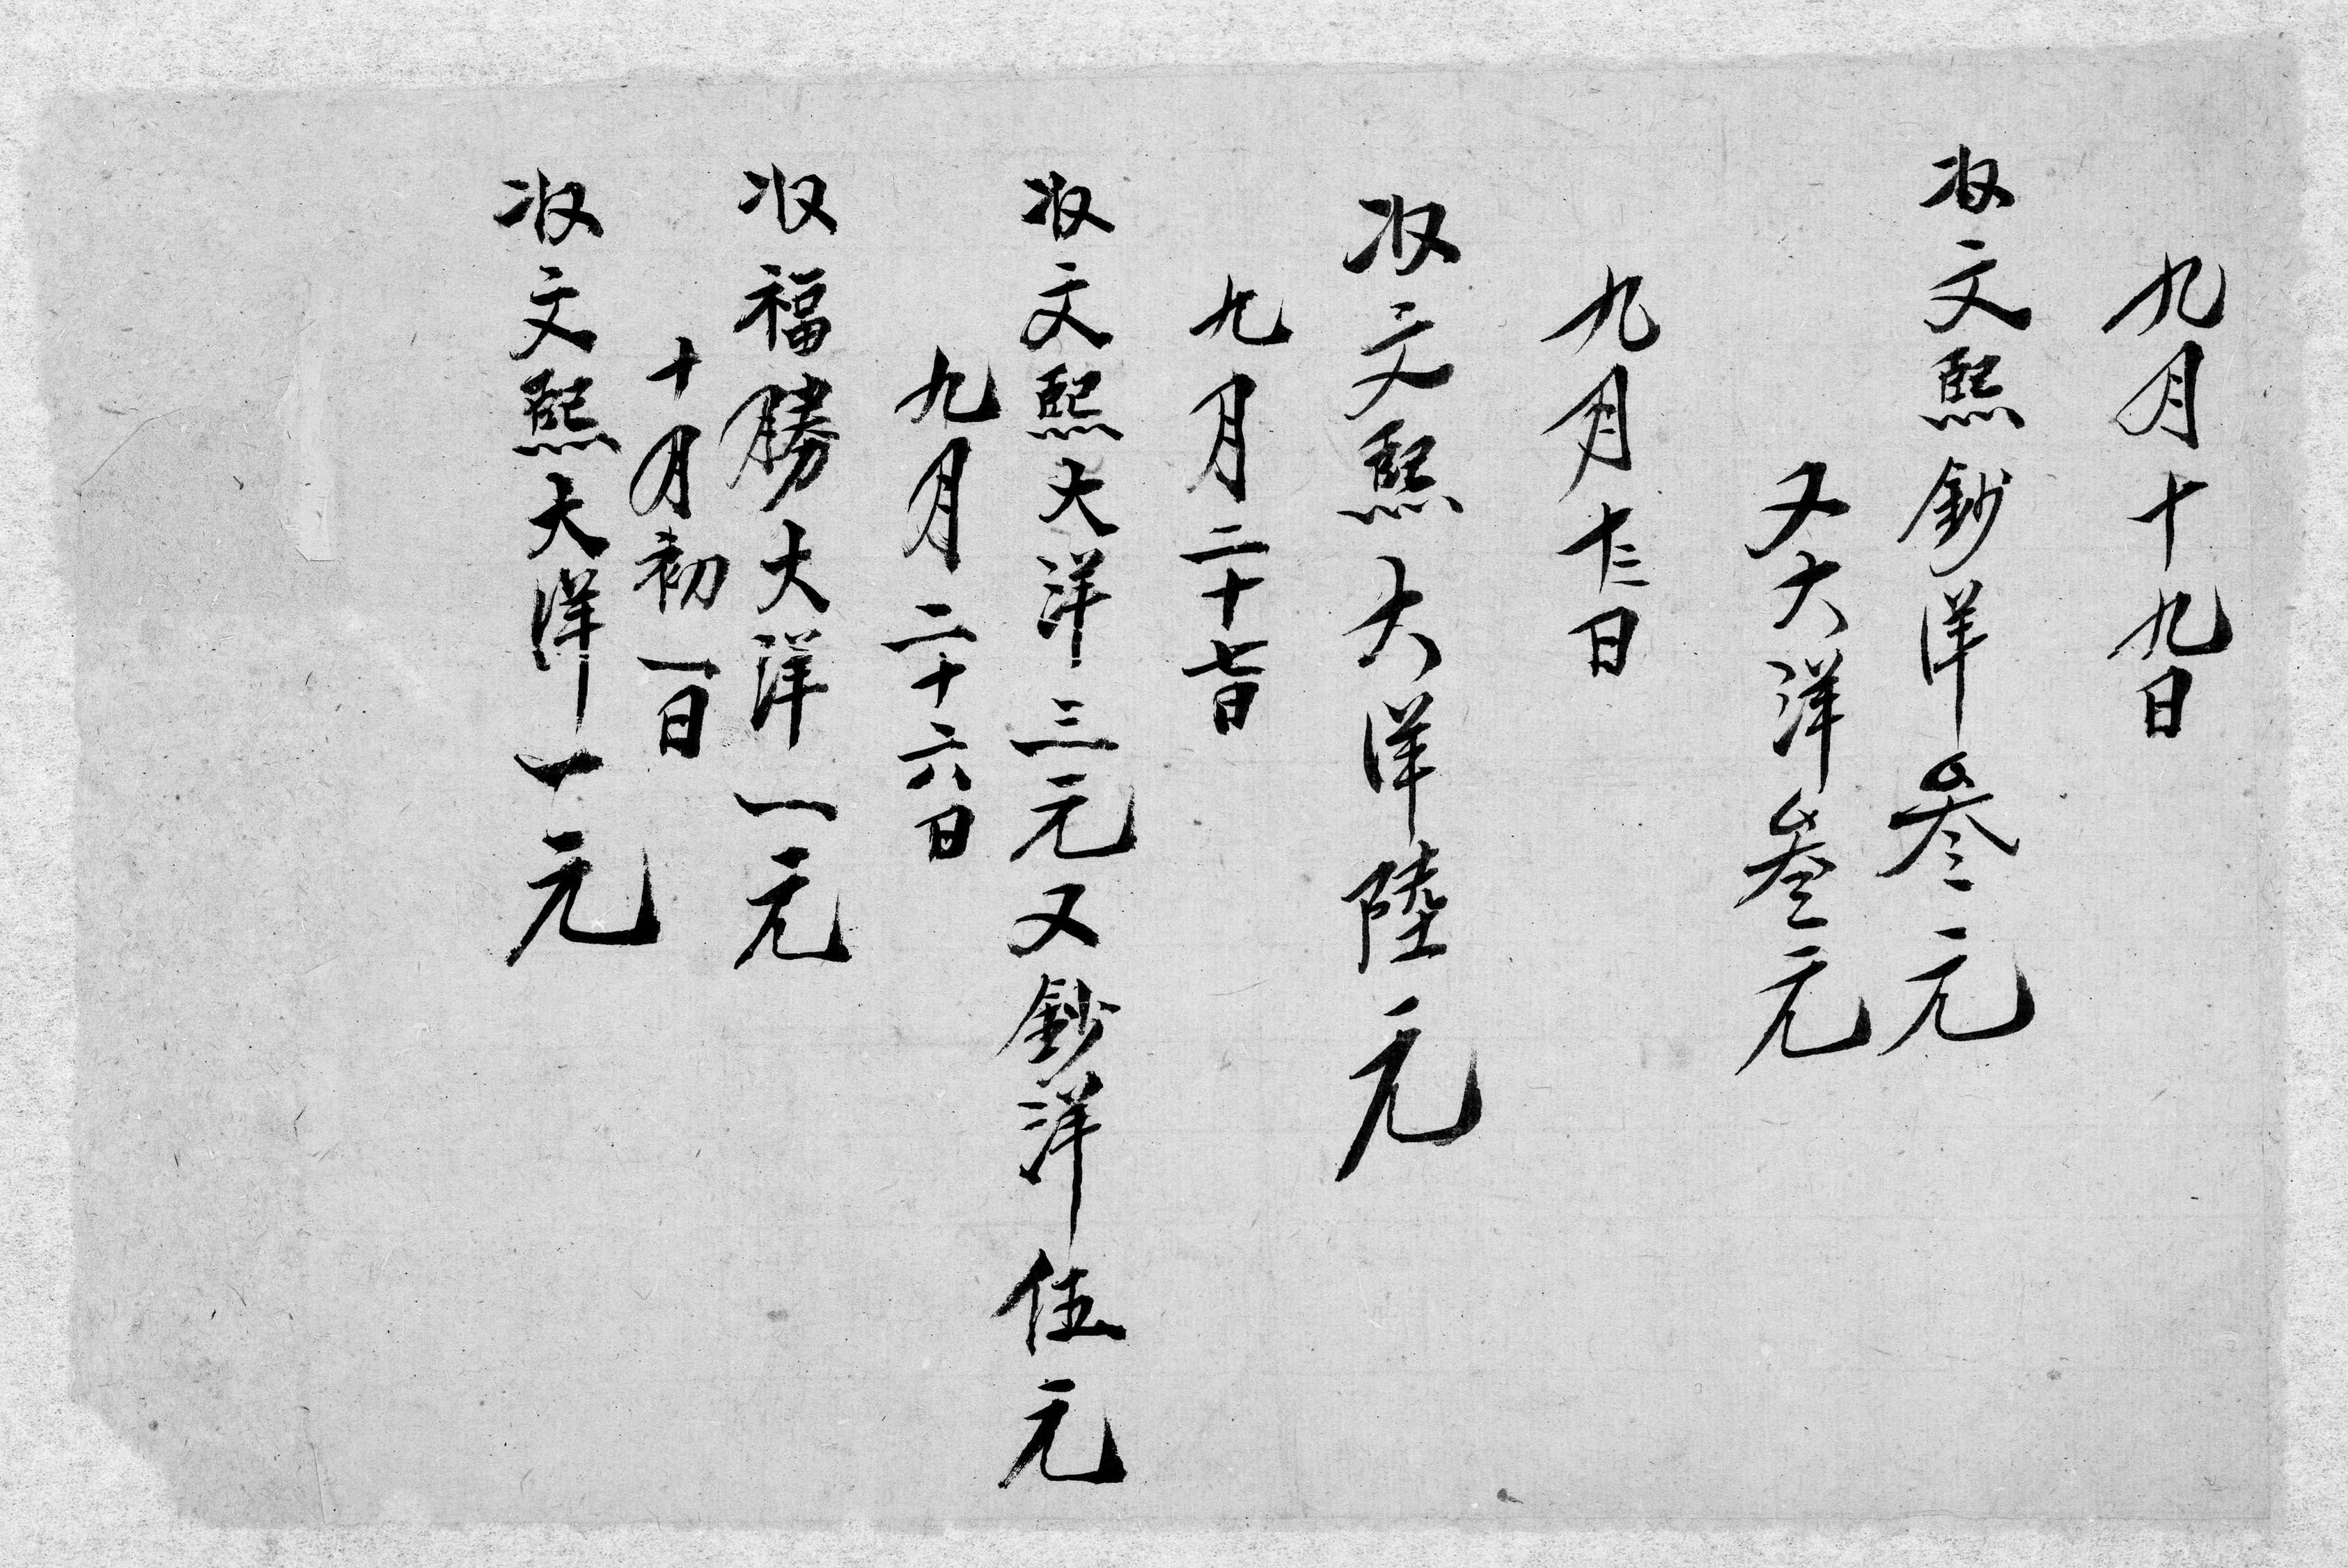 九月十九日
収文熙鈔洋叄元
又大洋叁元
九月十三日
収文熙大洋陸元
九月二十七日
収文熙大洋三元又鈔洋伍元
九月二十六日
収福勝大洋一元
十月初一日
収文熙大洋一元